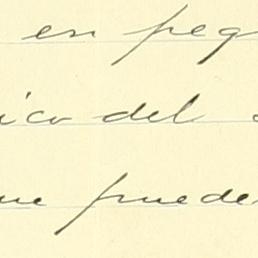 en peq
ico del
ue puede